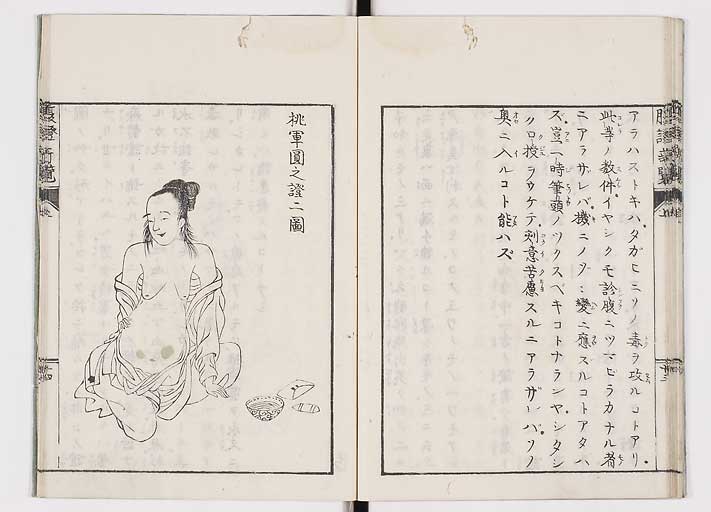 アラハストキハタガヒニソノ毒ヲ攻ルコトアリ。
此等ノ数件イヤシクモ診腹ニツマビラカナル者
ニアラザレバ機ニノゾミ変ニ應スルコトアタハ
ズ。豈一時筆頭ノツクスベキコトナランヤ。シタシ
ク口授ヲウケテ刻意苦慮スルニアラザレバソノ
奥ニ入ルコト能ハズ
桃軍圓之證二圖